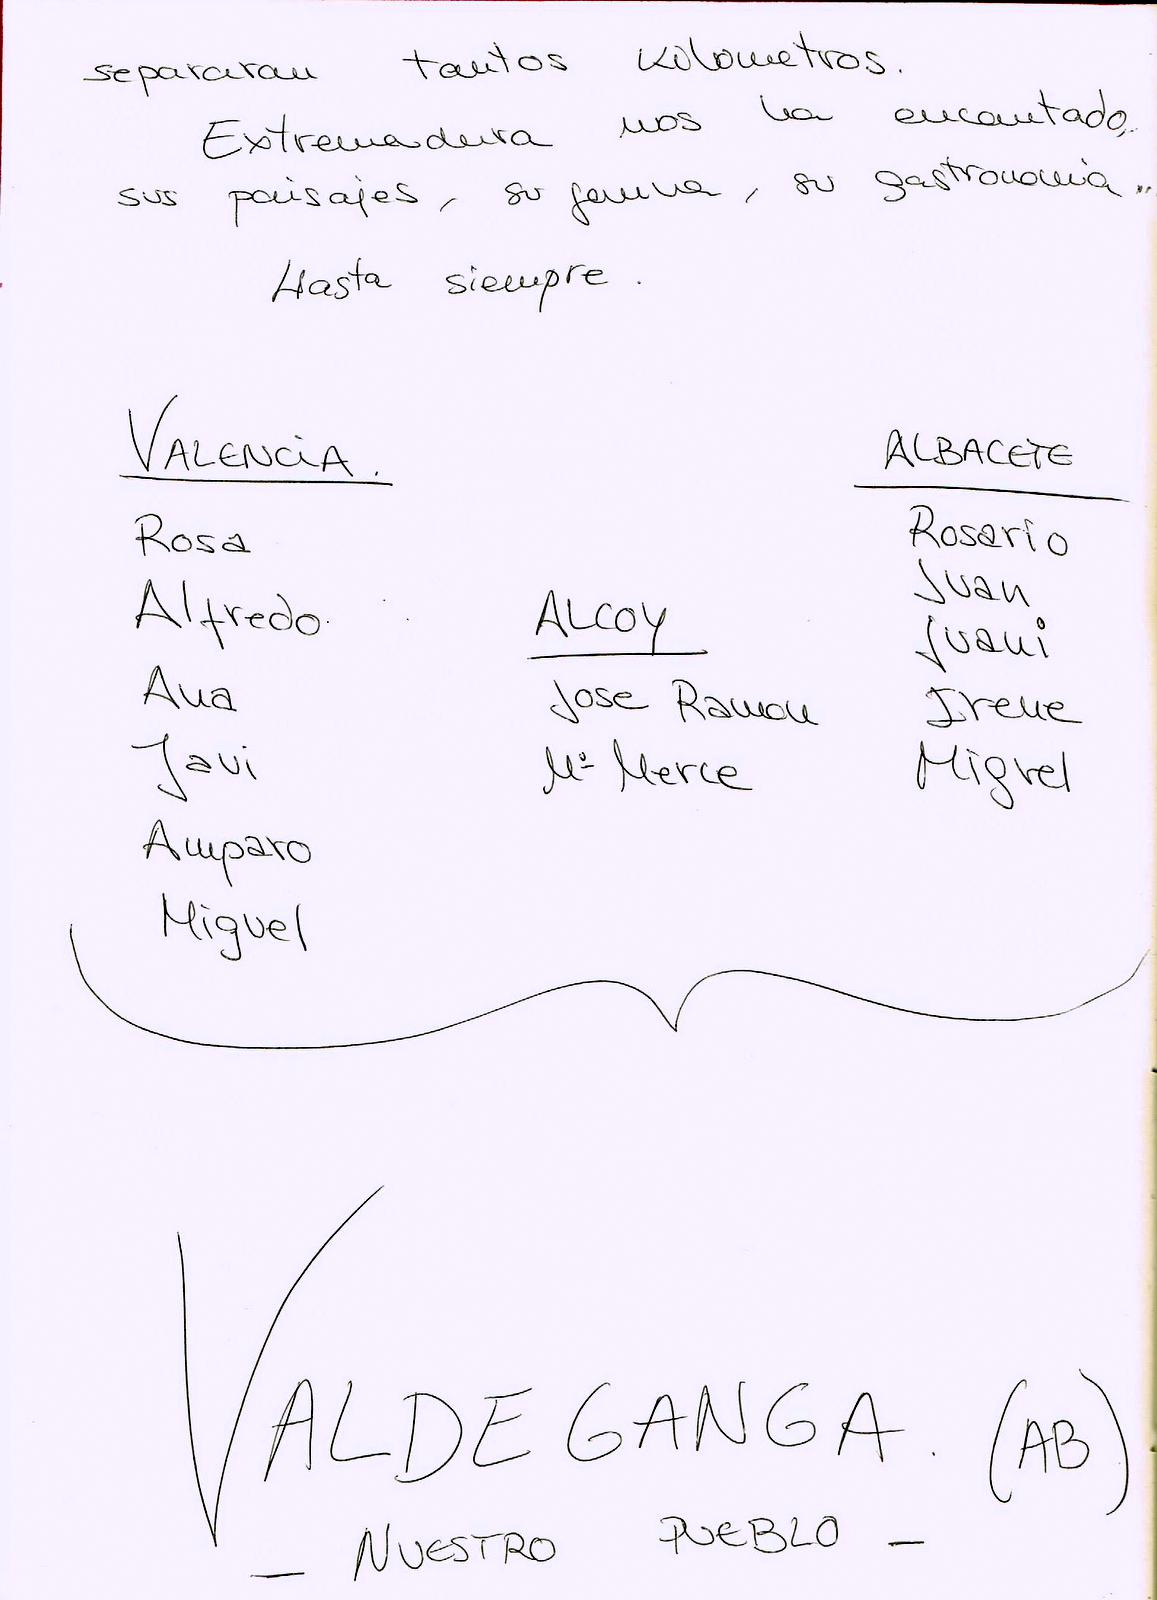 separaran tantos kilometros.
Extremadura nos ha encantado,
sus paisajes, su fauna, su gastronomia...
Hasta siempre.
VALENCIA.
Rosa
Alfredo.
Ana
Javi
Amparo
Miguel
ALCOY
Jose Ramon
Mª Merce
ALBACETE
Rosario
Juan
Juani
Irene
Miguel
VALDEGANGA. (AB)
- NUESTRO PUEBLO -